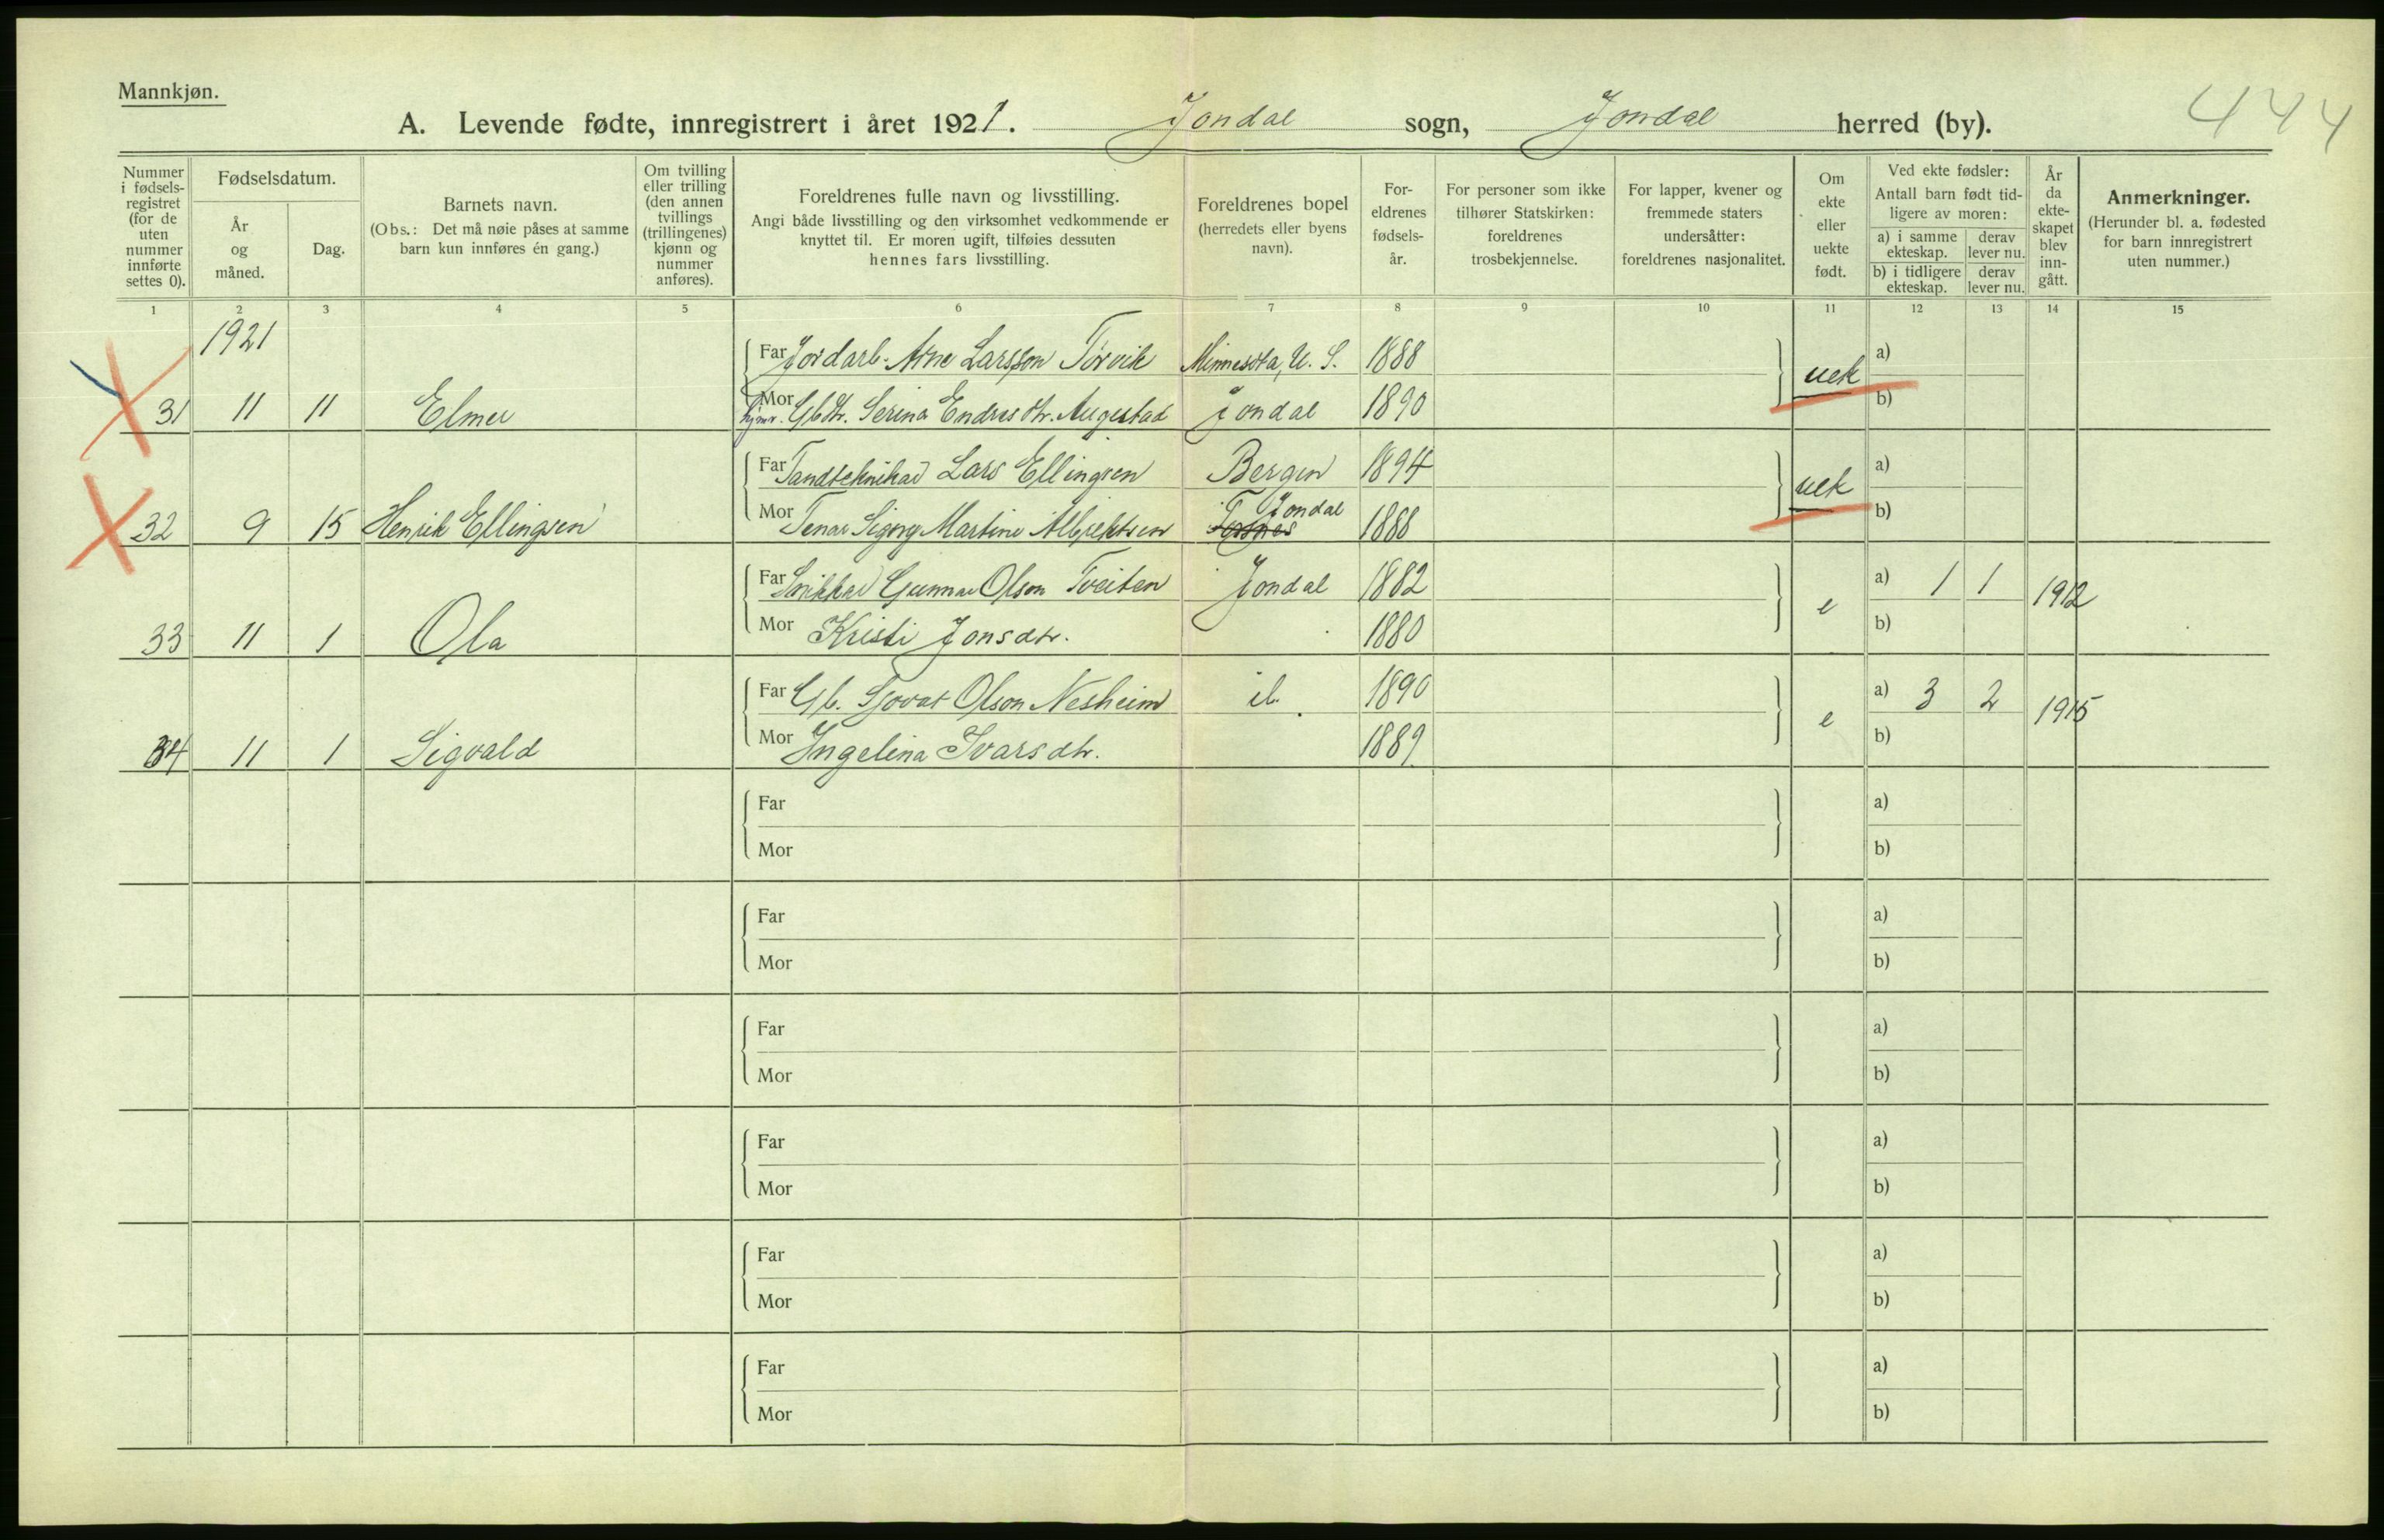 Mannkjøn.
A. Levende fødte, innregistrert i året 1921. Jondal sogn, Jondal herred (by). 444
Nummer i fødselsregistret (for de uten nummer innførte settes 0).
Fødselsdatum.
År og måned.
Dag.
Barnets navn.
(Obs.: Det må nøie påses at samme barn kun innføres én gang.)
Om tvilling eller trilling (den annen tvillings (trillingenes) kjønn og nummer anføres).
Foreldrenes fulle navn og livsstilling.
Angi både livsstilling og den virksomhet vedkommende er knyttet til. Er moren ugift, tilføies dessuten hennes fars livsstilling.
Foreldrenes bopel (herredets eller byens navn).
Foreldrenes fødselsår.
For personer som ikke tilhører Statskirken: foreldrenes trosbekjennelse.
For lapper, kvener og fremmede staters undersåtter: foreldrenes nasjonalitet.
Om ekte eller uekte født.
Ved ekte fødsler: Antall barn født tidligere av moren:
a) i samme ekteskap. derav lever nu.
b) i tidligere ekteskap. derav lever nu.
År da ekteskapet blev inngått.
Anmerkninger.
(Herunder bl. a. fødested for barn innregistrert uten nummer.)
1 2 3 4 5 6 7 8 9 10 11 12 13 14 15
1921
Far Jordarb. Arne Larsson Törvik Minnesota, U. S. 1888 a)
31 11 11 Elmer Mor Gbdtr. Serina Endresdtr. Augestad Jondal 1890 uek b)
Far Tandtekniker Lars Ellingsen Bergen 1894 a)
32 9 15 Henrik Ellingsen Mor Signy Martine Albrektsen Jondal 1888 uek b)
Far Snikkar Gunnar Olson Tveiten Jondal 1882 a) 1 1 1912
33 11 1 Ola Mor Kristi Jonsdtr. 1880 e b)
Far Gb. Sjovat Olson Nesheim 1890 a) 3 2 1915
34 11 1 Sigvald Mor Ingelina Ivarsdtr. 1889 e b)
Far a)
Mor b)
Far a)
Mor b)
Far a)
Mor b)
Far a)
Mor b)
Far a)
Mor b)
Far a)
Mor b)